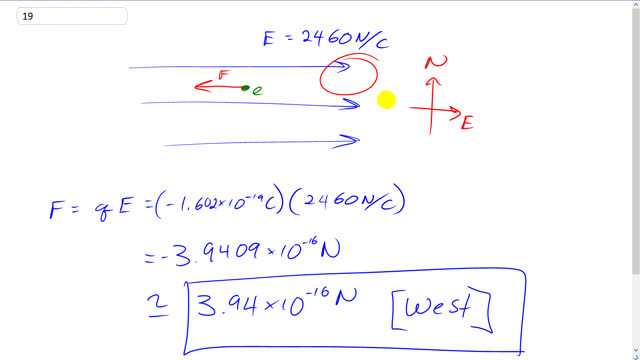 19
E = 2460 N/C
N
F
e
E
F = qE = (-1.602×10⁻¹⁹C)(2460 N/C)
= -3.9409×10⁻¹⁶ N
≃ 3.94×10⁻¹⁶ N [West]